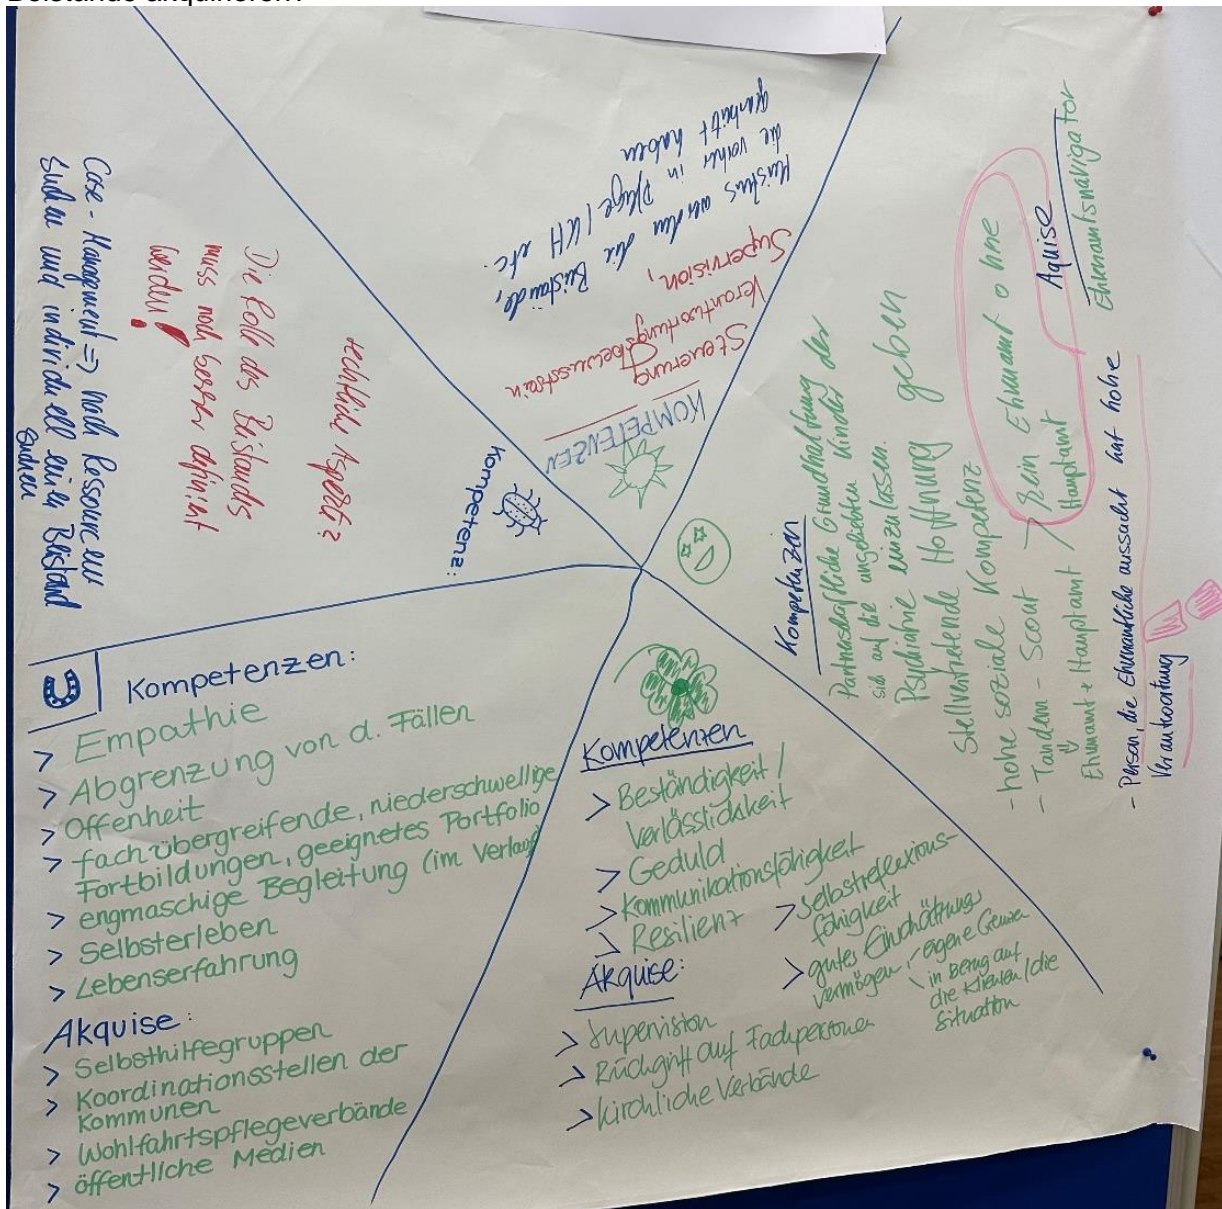 Kompetenzen:
> Empathie
> Abgrenzung von d. Fällen
> Offenheit
> fachübergreifende, niederschwellige
Fortbildungen, geeignetes Portfolio
> engmaschige Begleitung (im Verlauf
> Selbsterleben
> Lebenserfahrung
Akquise:
> Selbsthilfegruppen
> Koordinationsstellen der
Kommunen
> Wohlfahrtspflegeverbände
> öffentliche Medien
Kompetenzen
> Beständigkeit /
Verlässlichkeit
> Geduld
> Kommunikationsfähigkeit
> Resilienz
> Selbstreflexions-
fähigkeit
> gutes Einschätzungs
vermögen
eigene Grenzen
in Bezug auf
die Klienten / die
Situation
Akquise:
> Supervision
> Rückgriff auf Fachpersonen
> kirchliche Verbände
Kompetenzen
Partnerschaftliche Grundhaltung der
sich auf die ungeliebten Kinder der
Psychiatrie einzulassen.
Stellvertretende Hoffnung geben
- hohe soziale Kompetenz
- Tandem - Scout
Ehrenamt + Hauptamt
> Kein Ehrenamt ohne
Hauptamt
Aquise
Ehrenamtsnavigator
- Person, die Ehrenamtliche aussucht hat hohe
Verantwortung
KOMPETENZEN
Steuerung
Verantwortungsbewusstsein
Supervision,
Meistens werden die Beistände,
die vorher in Pflege / KH etc.
gearbeitet haben
Kompetenz:
rechtliche Aspekte?
Die Rolle des Beistands
muss noch besser definiert
werden!
Case-Management => nach Ressourcen
suchen und individuell einen Beistand
suchen